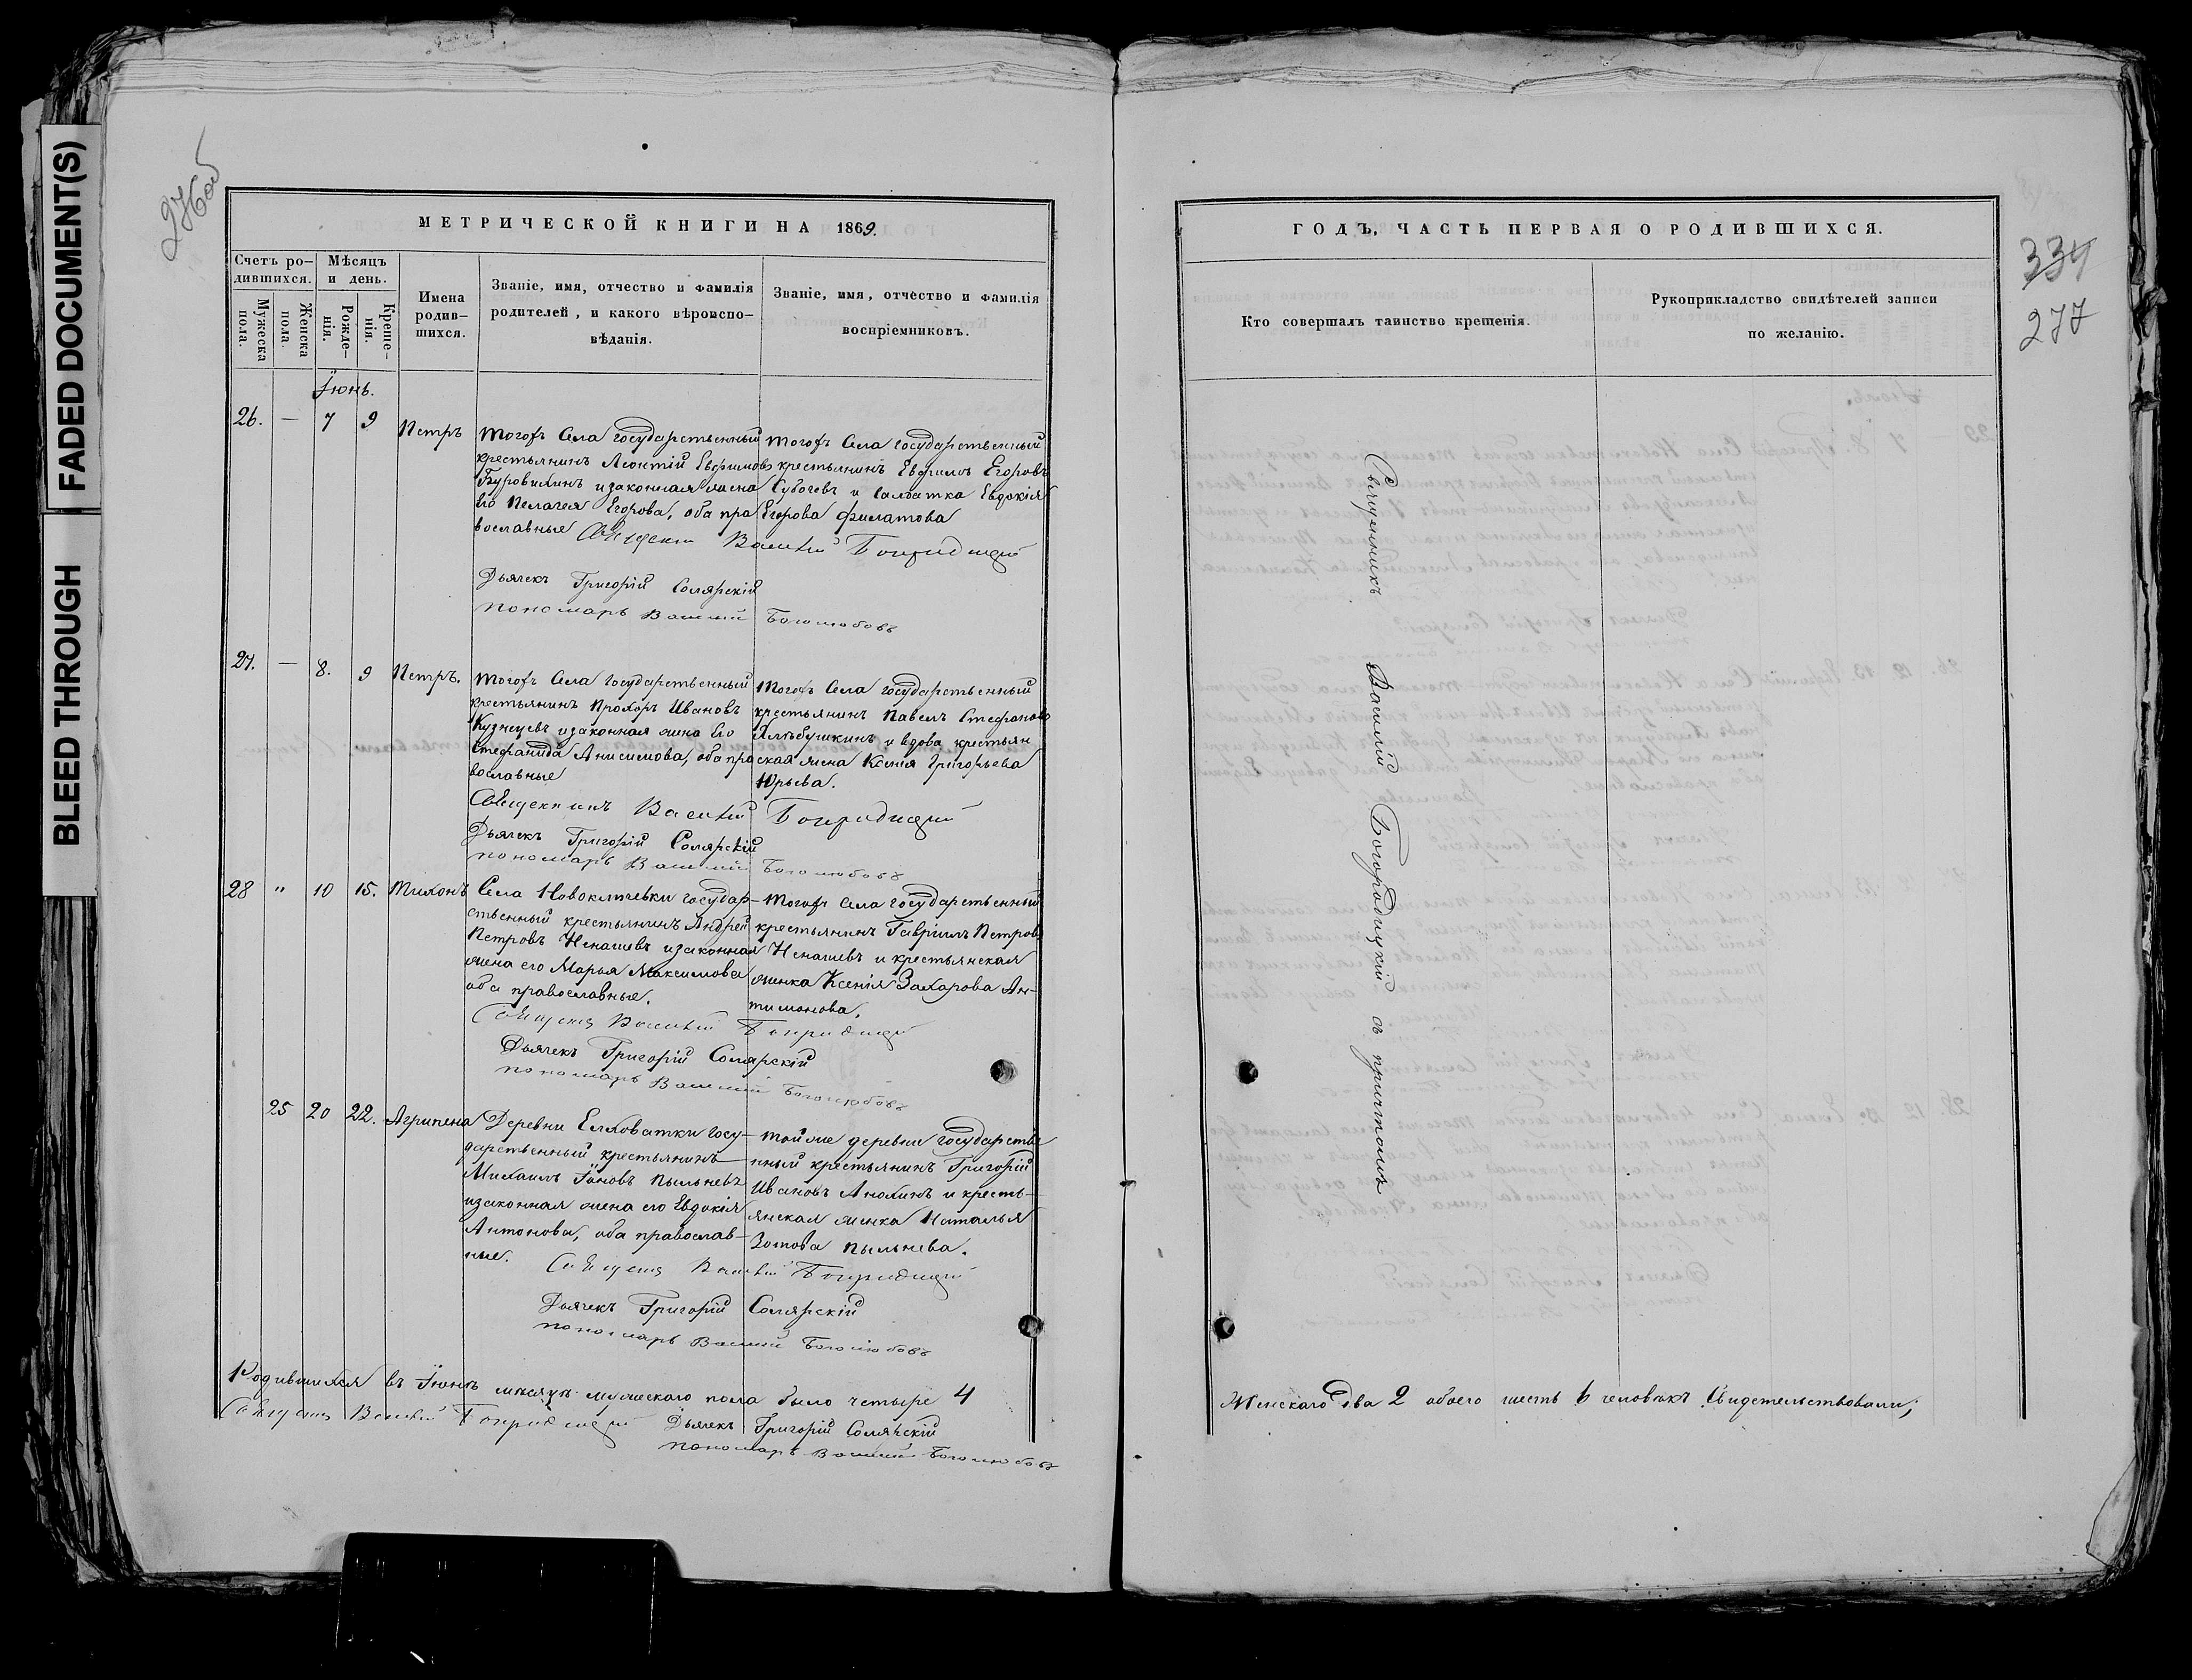 FADED DOCUMENT(S)
BLEED THROUGH
276об
МЕТРИЧЕСКОЙ КНИГИ НА 1869.
Счетъ ро-
дившихся.
Мѣсяцъ
и день.
Мужеска
пола.
Женска
пола.
Рожде-
нія.
Креще-
нія.
Имена
родив-
шихся.
Званіе, имя, отчество и фамилія
родителей, и какого вѣроиспо-
вѣданія.
Званіе, имя, отчество и фамилія
воспріемниковъ.
Іюнь.
26. — 7 9 Петръ
Тогожъ Села государственный
крестьянинъ Леонтій Евфимовъ
Буровилинъ и законная жена
его Пелагея Егорова, оба пра
вославные
Тогожъ Села государственный
крестьянинъ Евфимъ Егоровъ
Субочевъ и Салдатка Евдокія
Егорова Филатова
Священникъ Василій Богородицкій
Дьячекъ Григорій Солярскій
пономарь Василій Боголюбовъ
27. — 8. 9 Петръ.
Тогожъ Села государственный
крестьянинъ Прохоръ Ивановъ
Кузнецевъ и законная жена его
Стефанида Анисимова, оба пра
вославные
Тогожъ Села государственный
крестьянинъ Павелъ Стефановъ
Хлѣбушкинъ и вдова крестьян
ская жена Ксенія Григорьева
Юрьева.
Священникъ Василій Богородицкій
Дьячекъ Григорій Солярскій
пономарь Василій Боголюбовъ
28 " 10 15. Тихонъ
Села Новоключевки государ-
ственный крестьянинъ Андрей
Петровъ Ненашевъ и законная
жена его Марья Максимова
оба православные.
Тогожъ села государственный
крестьянинъ Гавріилъ Петровъ
Ненашевъ и крестьянская
женка Ксенія Захарова Ан-
тимонова.
Священникъ Василій Богородицкій
Дьячекъ Григорій Солярскій
пономарь Василій Боголюбовъ
25 20 22. Агрипена
Деревни Елховатки госу-
дарственный крестьянинъ
Михаилъ Іоновъ Пыльневъ
и законная жена его Евдокія
Антонова, оба православ-
ные.
тойже деревни государстве
нный крестьянинъ Григорій
Ивановъ Анохинъ и кресть-
янская женка Наталья
Зотова Пыльнева.
Священникъ Василій Богородицкій
Дьячекъ Григорій Солярскій
пономарь Василій Боголюбовъ
Родившихся въ Іюнѣ мѣсяцѣ мужескаго пола было четыре 4
Священникъ Василій Богородицкій Дьячекъ Григорій Солярскій
пономарь Василій Боголюбовъ
ГОДЪ, ЧАСТЬ ПЕРВАЯ О РОДИВШИХСЯ.
334
277
Кто совершалъ таинство крещенія.
Рукоприкладство свидѣтелей записи
по желанію.
Священникъ Василій Богородицкій съ причтомъ
Женскаго два 2 обоего шесть 6 человѣкъ Свидетельствовали;